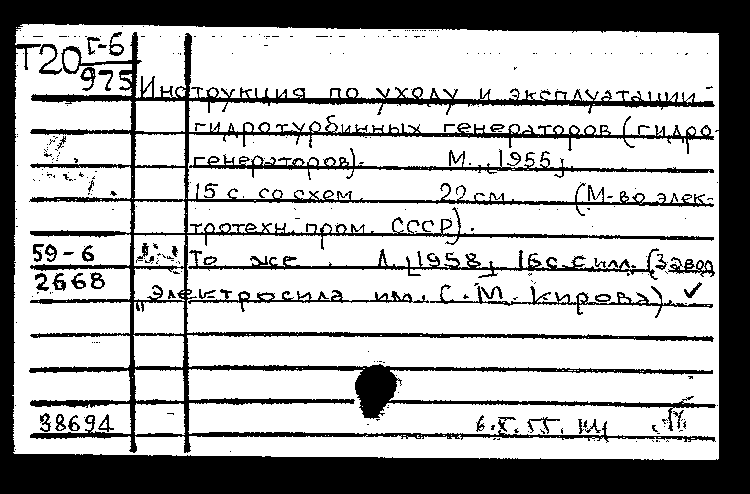 Т20 г-6
975
Инструкция по уходу и эксплуатации
гидротурбинных генераторов (гидро-
генераторов). М., [1955],
15 с. со схем. 22 см. (М-во элек-
тротехн. пром. СССР).
59-6
То же. Л., [1958], 16 с. с илл. (Завод
2668
"Электросила им. С. М. Кирова). ✓
38694
6.X.55.